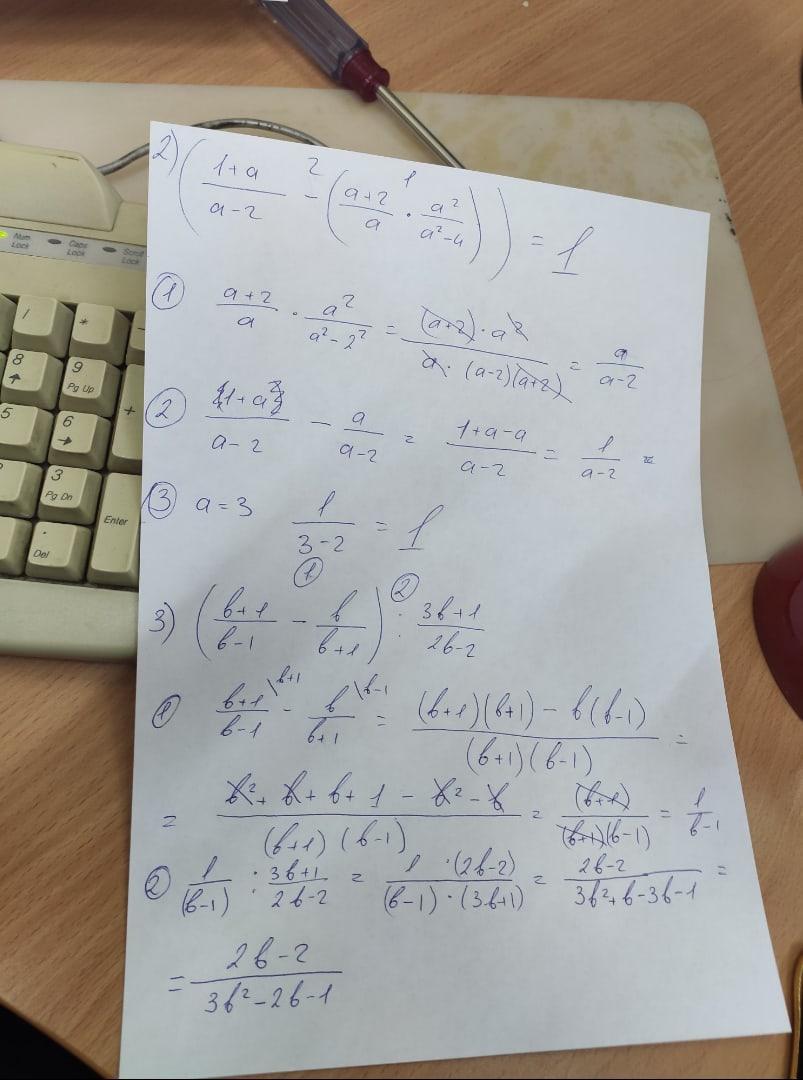 Num Lock Caps Lock Scroll Lock
/ *
8 9 Pg Up
5 6 +
3 Pg Dn Enter
. Del
2) ( (1+a)/(a-2) -² ( (a+2)/a ·¹ a²/(a²-4) ) ) = 1
① (a+2)/a · a²/(a²-2²) = ((a+2)·a²)/(a·(a-2)(a+2)) = a/(a-2)
② (1+a)/(a-2) - a/(a-2) = (1+a-a)/(a-2) = 1/(a-2) =
③ a=3 1/(3-2) = 1
3) ( (b+1)/(b-1) -① b/(b+1) ) :② (3b+1)/(2b-2)
① (b+1)/(b-1) \b+1 - b/(b+1) \b-1 = ((b+1)(b+1) - b(b-1))/((b+1)(b-1)) =
= (b²+b+b+1-b²-b)/((b+1)(b-1)) = (b+1)/((b+1)(b-1)) = 1/(b-1)
② 1/(b-1) : (3b+1)/(2b-2) = (1·(2b-2))/((b-1)·(3b+1)) = (2b-2)/(3b²+b-3b-1) =
= (2b-2)/(3b²-2b-1)